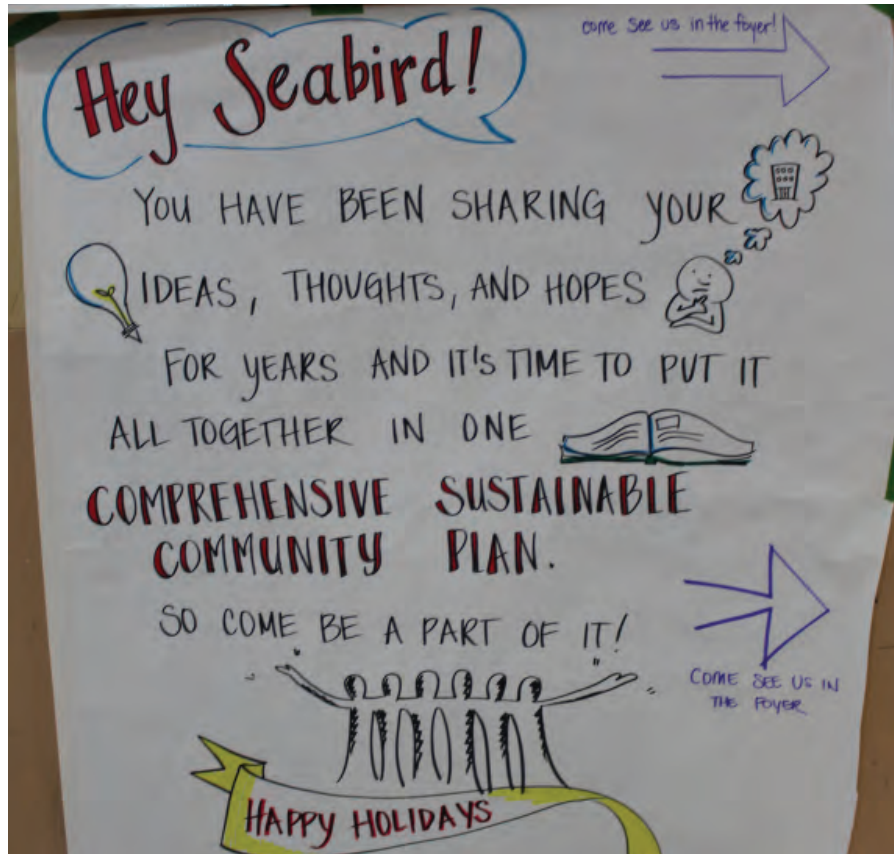 come see us in the foyer!
Hey Seabird!
YOU HAVE BEEN SHARING YOUR
IDEAS, THOUGHTS, AND HOPES
FOR YEARS AND IT'S TIME TO PUT IT
ALL TOGETHER IN ONE
COMPREHENSIVE SUSTAINABLE
COMMUNITY PLAN.
SO COME BE A PART OF IT!
COME SEE US IN
THE FOYER
HAPPY HOLIDAYS